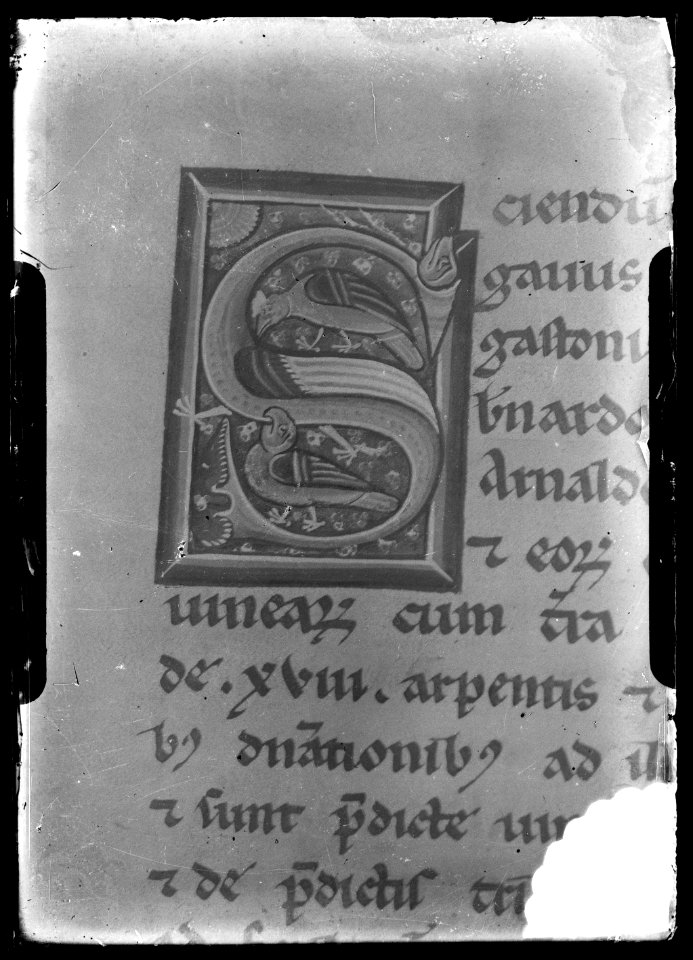 Sciendũ
gauus
gastoni
bñardo
Arnald
⁊ eoꝝ
uineaꝝ cum t̃ra
de .xviii. arpentis ⁊
bꝰ dñationibꝰ ad ill
⁊ sunt p̃dicte uin
⁊ de p̃dictis